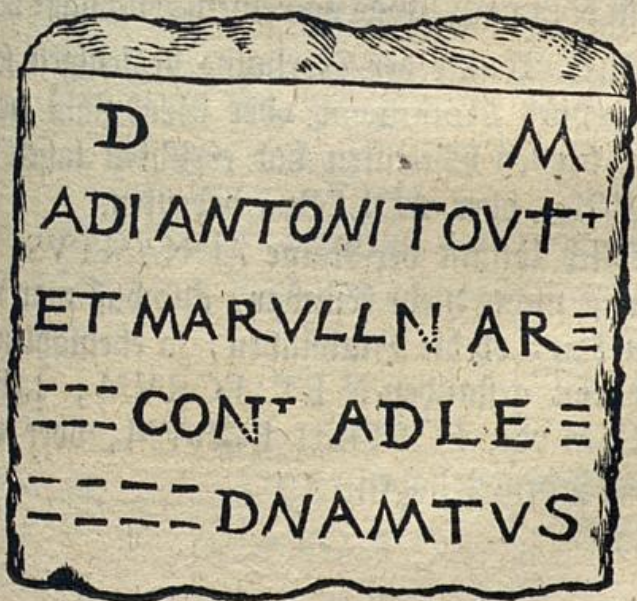 D M
ADIANTONI TOVTT
ET MARVLLN AR
CONT ADLE
DNAMTVS